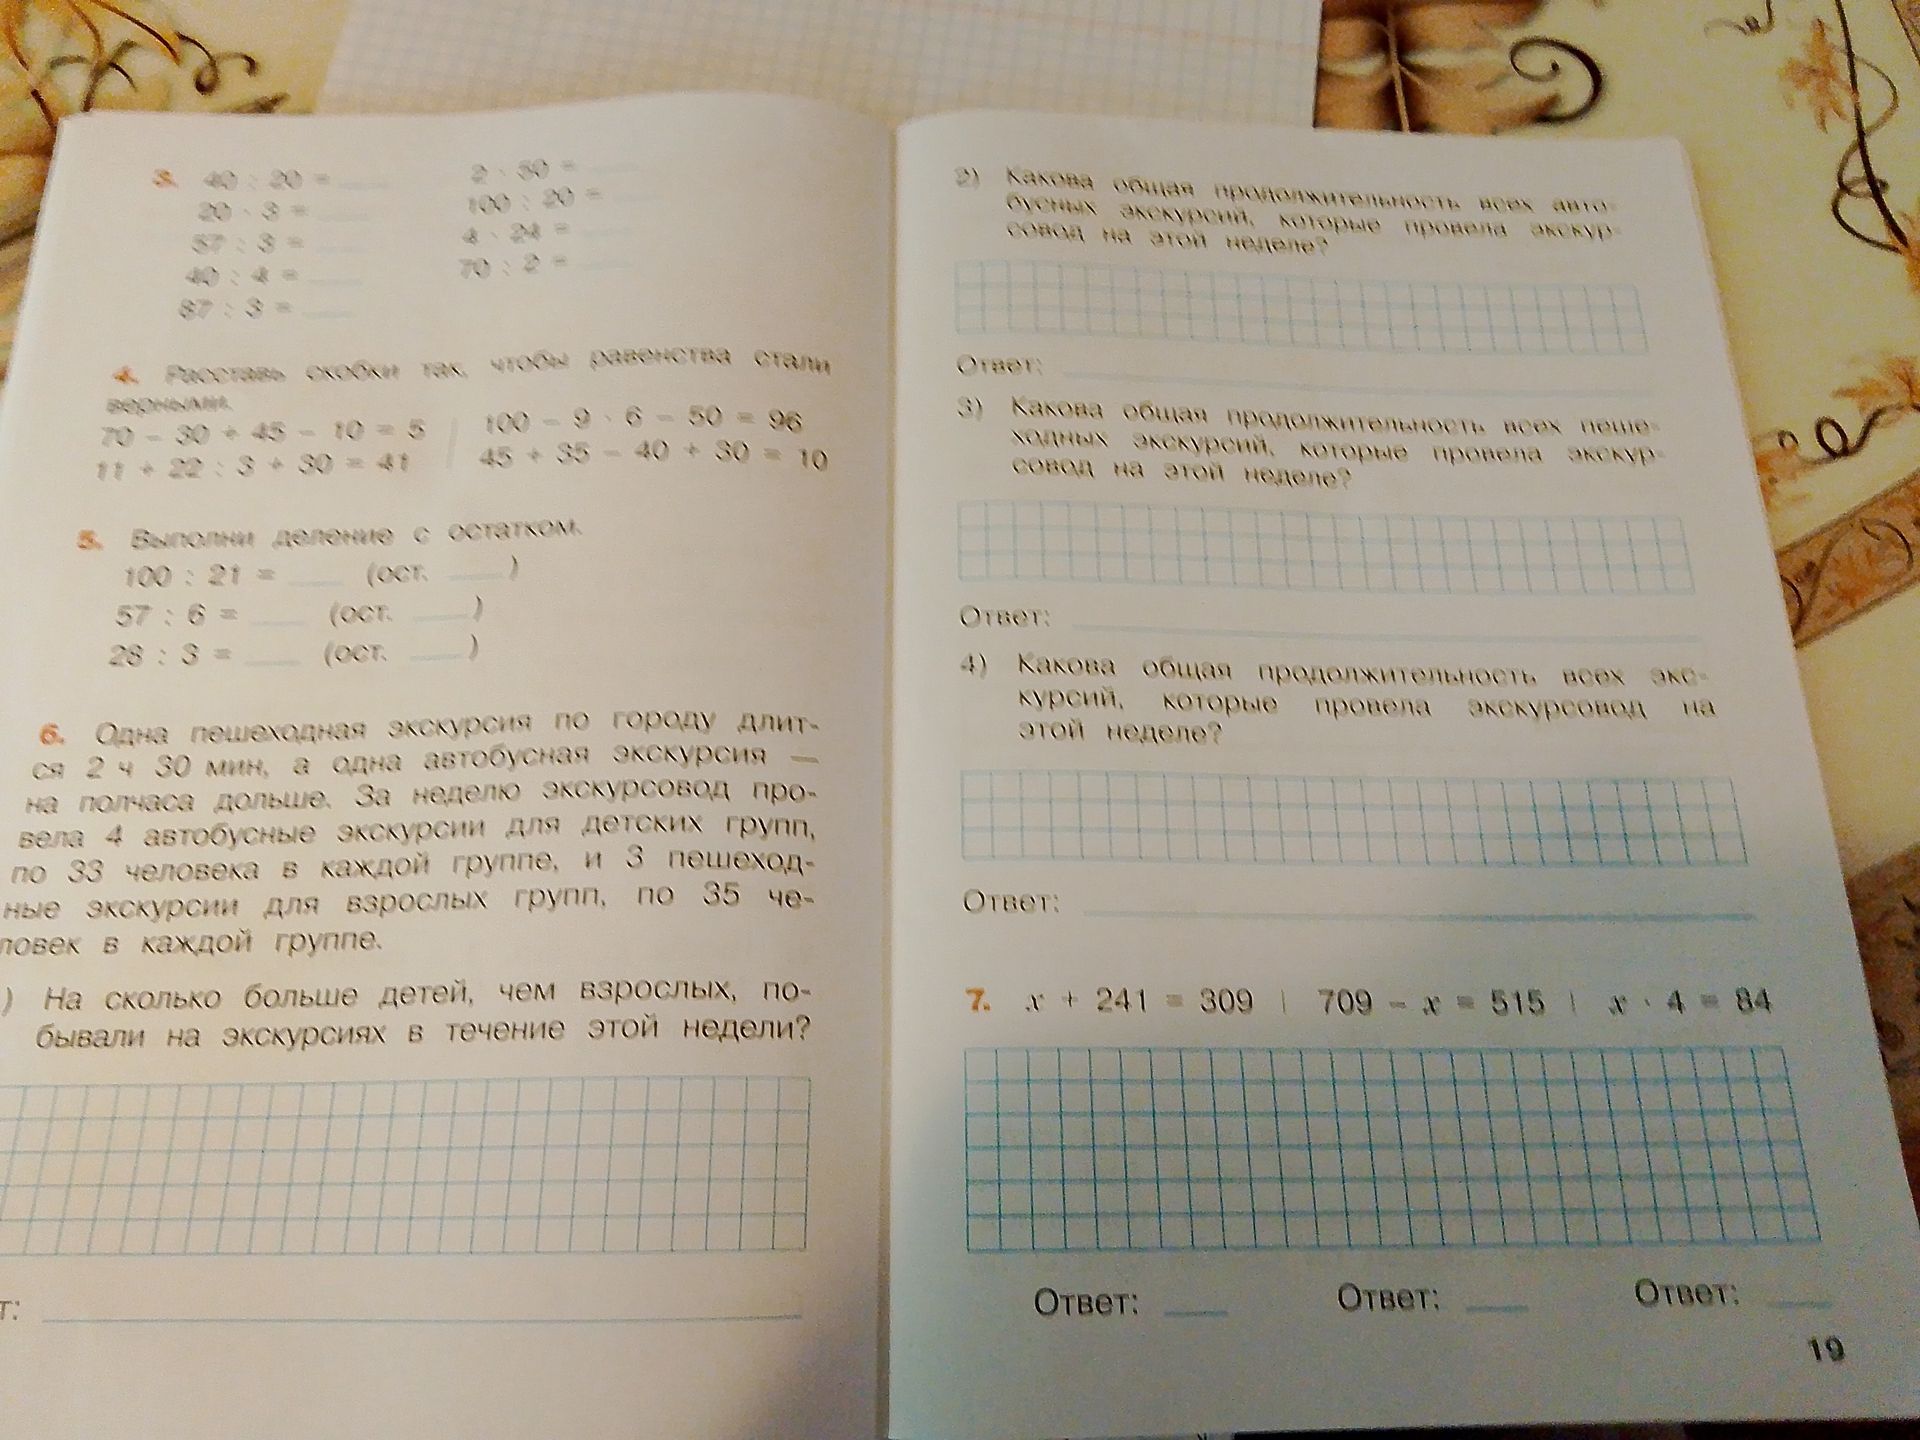 3. 40 : 20 =
20 · 3 =
57 : 3 =
40 : 4 =
87 : 3 =
2 · 50 =
100 : 20 =
4 · 24 =
70 : 2 =
4. Расставь скобки так, чтобы равенства стали
верными.
70 – 30 + 45 – 10 = 5
11 + 22 : 3 + 30 = 41
100 – 9 · 6 – 50 = 96
45 + 35 – 40 + 30 = 10
5. Выполни деление с остатком.
100 : 21 = ___ (ост. ___)
57 : 6 = ___ (ост. ___)
28 : 3 = ___ (ост. ___)
6. Одна пешеходная экскурсия по городу длит-
ся 2 ч 30 мин, а одна автобусная экскурсия —
на полчаса дольше. За неделю экскурсовод про-
вела 4 автобусные экскурсии для детских групп,
по 33 человека в каждой группе, и 3 пешеход-
ные экскурсии для взрослых групп, по 35 че-
ловек в каждой группе.
) На сколько больше детей, чем взрослых, по-
бывали на экскурсиях в течение этой недели?
т:
2) Какова общая продолжительность всех авто-
бусных экскурсий, которые провела экскур-
совод на этой неделе?
Ответ:
3) Какова общая продолжительность всех пеше-
ходных экскурсий, которые провела экскур-
совод на этой неделе?
Ответ:
4) Какова общая продолжительность всех экс-
курсий, которые провела экскурсовод на
этой неделе?
Ответ:
7. x + 241 = 309 | 709 – x = 515 | x · 4 = 84
Ответ: ___ Ответ: ___ Ответ: ___
19